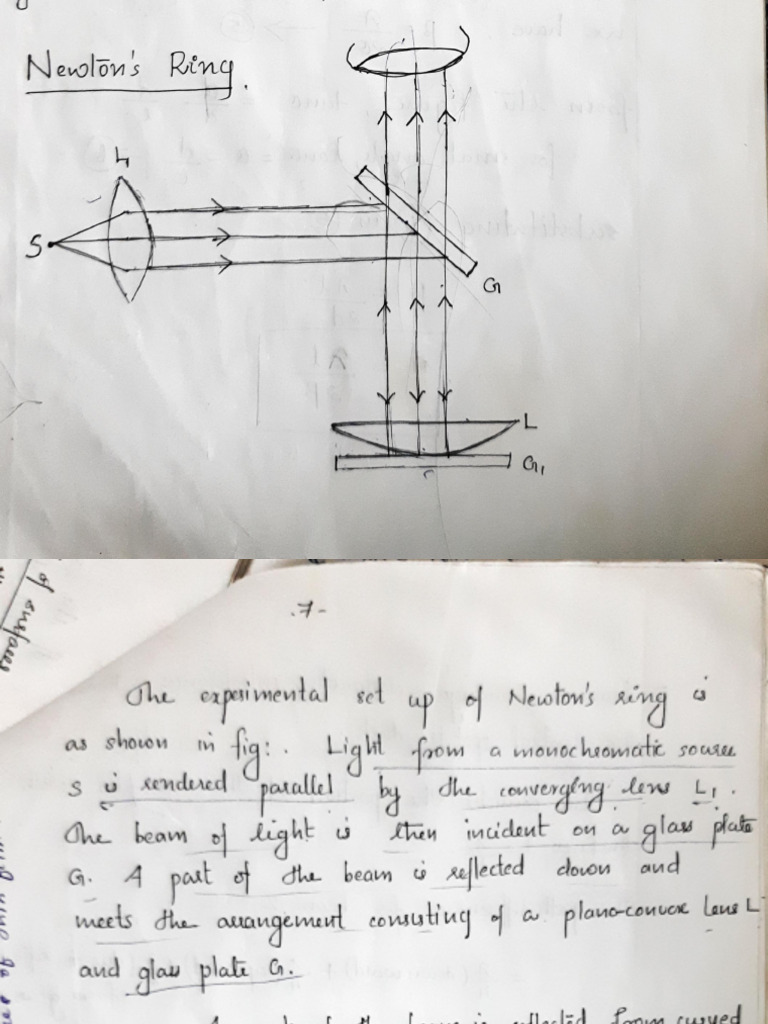 Newton's Ring.
L
S
G
L
G₁
of surfaces
.7-
The experimental set up of Newton's ring is
as shown in fig:. Light from a monochromatic source
S is rendered parallel by the converging lens L₁.
The beam of light is then incident on a glass plate
G. A part of the beam is reflected down and
meets the arrangement consisting of a plano-convex lens L
and glass plate G.
reflected from curved